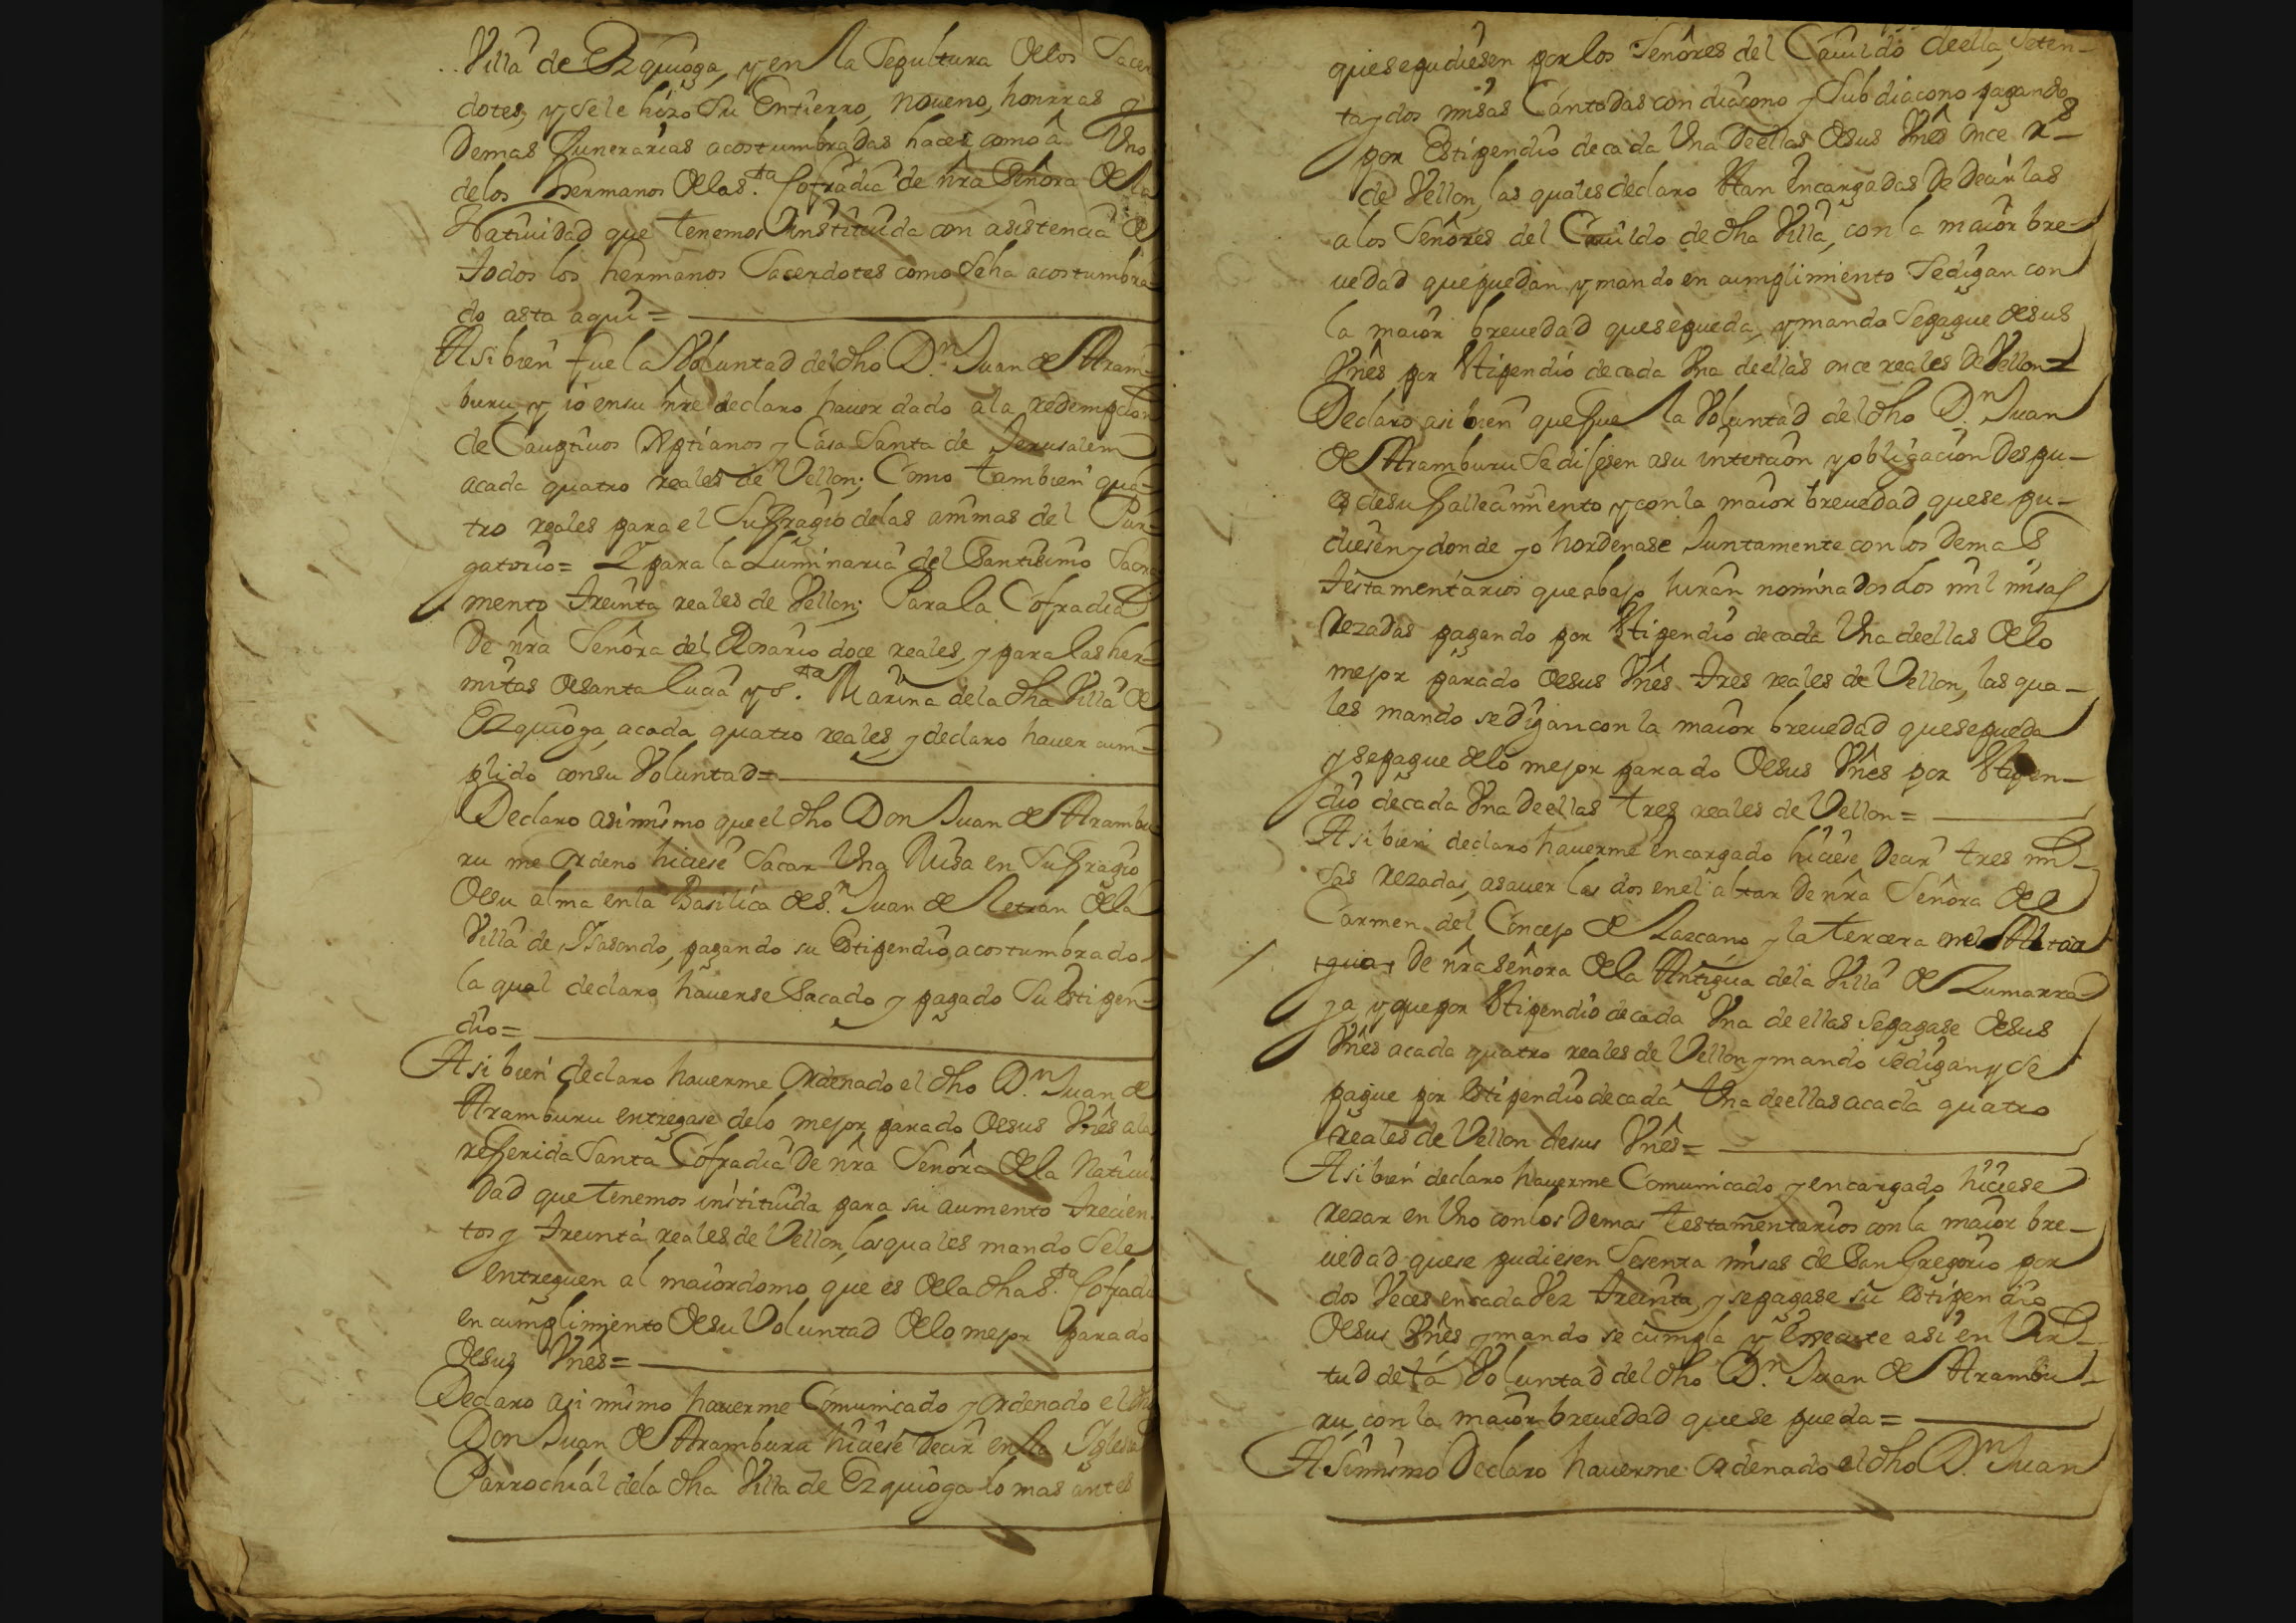 Villa de Ezquioga, y en la Sepultura de los Sacer
dotes, y se le hizo su Entierro, noueno, honrras y
demas Funerarias acostumbradas hacer, como â Uno
de los hermanos de la S.ta Cofradia de nra Señora de la
Natiuidad que tenemos instituida con asistencia de
todos los hermanos Sacerdotes como se ha acostumbra
do asta aqui =
Asi bien fue la Voluntad del dho D.n Juan de Aram-
buru y io en su nre declaro hauer dado a la redempcion
de Cauptiuos Xptianos y Casa Santa de Jerusalem
a cada quatro reales de Vellon; Como tambien qua-
tro reales para el Suffragio de las animas del Pur-
gatorio = Y para la Luminaria del Santisimo Sacra
mento treinta reales de Vellon; Para la Cofradia
de nra Señora del Rosario doce reales, y para las her-
mitas de santa Lucia y S.ta Marina de la dha Villa de
Ezquioga, a cada quatro reales, y declaro hauer cum-
plido con su Voluntad =
Declaro asi mismo que el dho Don Juan de Arambu
ru me ordeno hiciese sacar Una Misa en Suffragio
de su alma en la Basilica de S.n Juan de Letran de la
Villa de Isasondo, pagando su Estipendio acostumbrado
la qual declaro hauerse sacado y pagado su Estipen-
dio =
Asi bien declaro hauerme ordenado el dho D.n Juan de
Aramburu entregase de lo mejor parado de sus Vnês a la
refferida Santa Cofradia de nra Señora de la Natiui
dad que tenemos instituida para su aumento trecien
tos y treinta reales de Vellon, los quales mando se le
entreguen al maiordomo que es de la dha S.ta Cofradi
en cumplimiento de su Voluntad de lo mejor parado
de sus Vnês =
Declaro asi mismo hauerme Comunicado y ordenado el dho
Don Juan de Aramburu hiciese decir en la Iglesia
Parrochial de la dha Villa de Ezquioga lo mas antes
que se pudiesen por los Señores del Cauildo de ella, Seten-
ta y dos misas Cantadas con diacono y Subdiacono pagando
por Estipendio de cada Una de ellas de sus Vnês once rs
de Vellon, las quales declaro stan encargadas de decir las
a los Señores del Cauildo de dha Villa, con la maior bre-
uedad que puedan y mando en cumplimiento se digan con
la maior breuedad que se pueda, y mando se pague de sus
Vnês por Stipendio de cada Vna de ellas once reales de Vellon =
Declaro asi bien que fue la Voluntad del dho D.n Juan
de Aramburu se dijesen a su intencion y obligacion despu-
es de su fallecimiento y con la maior breuedad que se pu-
diesen y donde yo hordenase Juntamente con los demas
testamentarios que abajo hiran nominados dos mil misas
rezadas pagando por Stipendio de cada Una de ellas de lo
mejor parado de sus Vnês tres reales de Vellon, las qua-
les mando se digan con la maior breuedad que se pueda
y se pague de lo mejor parado de sus Vnês por Stipen-
dio de cada Vna de ellas tres reales de Vellon =
Asi bien declaro hauerme encargado hiciese decir tres mi-
sas rezadas, a sauer las dos en el altar de nra Señora del
Carmen del Concejo de Lazcano y la tercera en el
de nra señora de la Antigua de la Villa de Zumarra-
ga y que por Stipendio de cada Vna de ellas se pagase de sus
Vnês a cada quatro reales de Vellon, y mando se digan y se
pague por Estipendio de cada Una de ellas a cada quatro
reales de Vellon de sus Vnês =
Asi bien declaro hauerme Comunicado y encargado hiciese
rezar en Uno con los demas testamentarios con la maior bre-
uedad que se pudiesen Sesenta misas de San Gregorio por
dos Veces en cada Vez treinta, y se pagase su Estipendio
de sus Vnês y mando se cumpla y Execute asi en Vir-
tud de la Voluntad del dho D.n Juan de Arambu-
ru, con la maior breuedad que se pueda =
Asimismo Declaro hauerme ordenado el dho D.n Juan